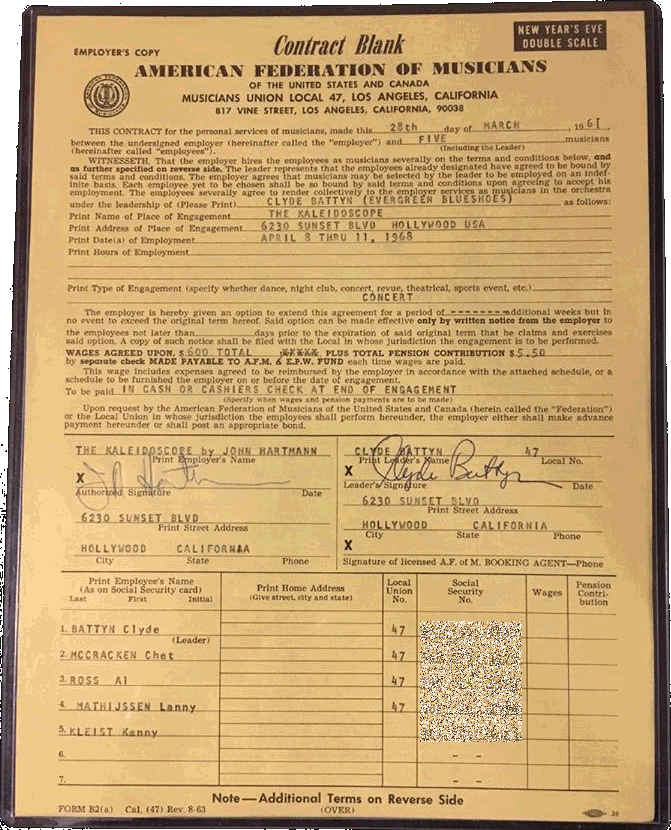 EMPLOYER'S COPY
Contract Blank
NEW YEAR'S EVE
DOUBLE SCALE
AMERICAN FEDERATION OF MUSICIANS
OF THE UNITED STATES AND CANADA
MUSICIANS UNION LOCAL 47, LOS ANGELES, CALIFORNIA
817 VINE STREET, LOS ANGELES, CALIFORNIA, 90038
THIS CONTRACT for the personal services of musicians, made this 28th day of MARCH, 1961
between the undersigned employer (hereinafter called the "employer") and FIVE musicians
(hereinafter called "employees"). (including the Leader)
WITNESSETH, That the employer hires the employees as musicians severally on the terms and conditions below, and
as further specified on reverse side. The leader represents that the employees already designated have agreed to be bound by
said terms and conditions. The employer agrees that musicians may be selected by the leader to be employed on an indef-
inite basis. Each employee yet to be chosen shall be so bound by said terms and conditions upon agreeing to accept his
employment. The employees severally agree to render collectively to the employer services as musicians in the orchestra
under the leadership of (Please Print) CLYDE BATTYN (EVERGREEN BLUESHOES) as follows:
Print Name of Place of Engagement THE KALEIDOSCOPE
Print Address of Place of Engagement 6230 SUNSET BLVD HOLLYWOOD USA
Print Date(s) of Employment APRIL 8 THRU 11, 1968
Print Hours of Employment
Print Type of Engagement (specify whether dance, night club, concert, revue, theatrical, sports event, etc.)
CONCERT
The employer is hereby given an option to extend this agreement for a period of -------- additional weeks but in
no event to exceed the original term hereof. Said option can be made effective only by written notice from the employer to
the employees not later than days prior to the expiration of said original term that he claims and exercises
said option. A copy of such notice shall be filed with the Local in whose jurisdiction the engagement is to be performed.
WAGES AGREED UPON, $ 600 TOTAL XXXXX PLUS TOTAL PENSION CONTRIBUTION $ 5.50
by separate check MADE PAYABLE TO A.F.M. & E.P.W. FUND each time wages are paid.
This wage includes expenses agreed to be reimbursed by the employer in accordance with the attached schedule, or a
schedule to be furnished the employer on or before the date of engagement.
To be paid IN CASH OR CASHIERS CHECK AT END OF ENGAGEMENT
(Specify when wages and pension payments are to be made)
Upon request by the American Federation of Musicians of the United States and Canada (herein called the "Federation")
or the Local Union in whose jurisdiction the employees shall perform hereunder, the employer either shall make advance
payment hereunder or shall post an appropriate bond.
THE KALEIDOSCOPE by JOHN HARTMANN
Print Employer's Name
X
Authorized Signature Date
6230 SUNSET BLVD
Print Street Address
HOLLYWOOD CALIFORNAA
City State Phone
CLYDE BATTYN 47
Print Leader's Name Local No.
X Clyde Battyn
Leader's Signature Date
6230 SUNSET BLVD
Print Street Address
HOLLYWOOD CALIFORNIA
City State Phone
X
Signature of licensed A.F. of M. BOOKING AGENT—Phone
Print Employee's Name
(As on Social Security card)
Last First Initial
Print Home Address
(Give street, city and state)
Local
Union
No.
Social
Security
No.
Wages
Pension
Contri-
bution
1. BATTYN Clyde 47
(Leader)
2. MCCRACKEN Chet 47
3. ROSS Al 47
4. MATHIJSSEN Lanny 47
5. KLEIST Kenny
6. - -
7. - -
Note—Additional Terms on Reverse Side
FORM B2(a) Cal. (47) Rev. 8-63 (OVER) 28